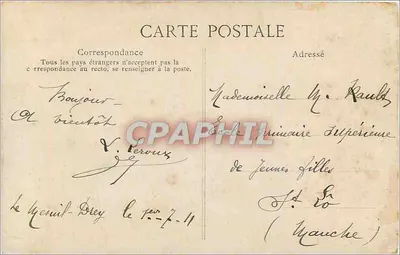 CARTE POSTALE
Correspondance
Tous les pays étrangers n'acceptent pas la
correspondance au recto, se renseigner à la poste.
Bonjour
A bientôt
L. Leroux
Le Mesnil-Drey le 1er-7-11
Adressé
Mademoiselle M. Rault
Ecole Primaire Supérieure
de Jeunes filles
St Lô
(Manche)
CPAPHIL